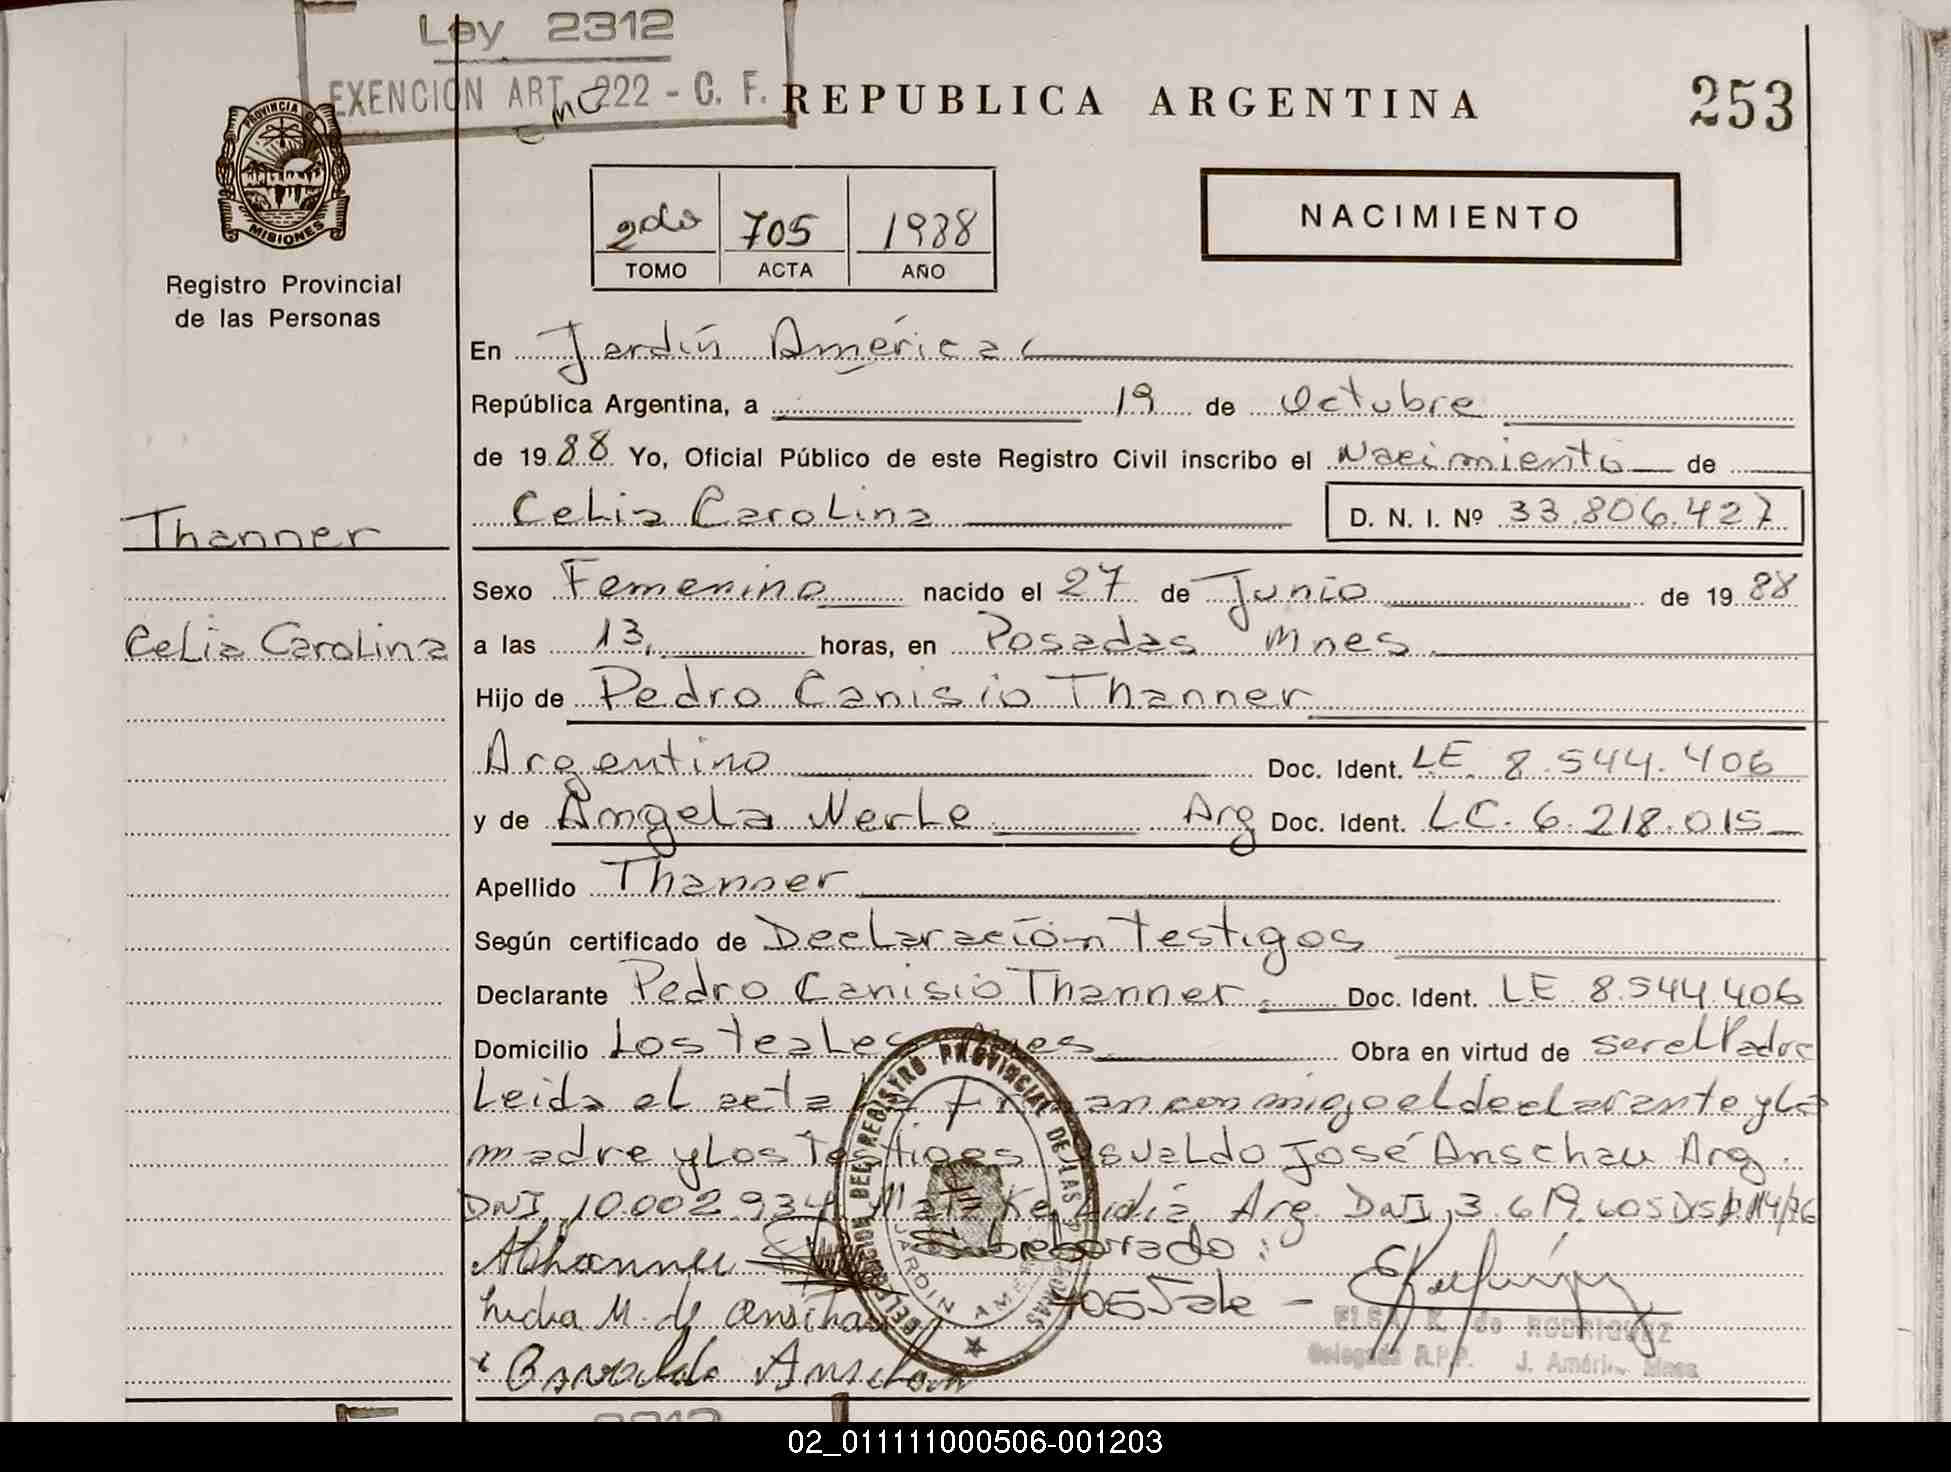 Ley 2312
EXENCION ART. 222 - C. F.
REPUBLICA ARGENTINA
253
PROVINCIA DE
MISIONES
Registro Provincial
de las Personas
2do 705 1988
TOMO ACTA AÑO
NACIMIENTO
En Jardín América
República Argentina, a 19 de Octubre
de 1988 Yo, Oficial Público de este Registro Civil inscribo el Nacimiento de
Celia Carolina D. N. I. Nº 33.806.427
Thanner
Celia Carolina
Sexo Femenino nacido el 27 de Junio de 1988
a las 13, horas, en Posadas Mnes.
Hijo de Pedro Canisio Thanner
Argentino Doc. Ident. LE. 8.544.406
y de Angela Nerle Arg Doc. Ident. LC. 6.218.015
Apellido Thanner
Según certificado de Declaración Testigos
Declarante Pedro Canisio Thanner Doc. Ident. LE 8.544.406
Domicilio Los Teales Mnes Obra en virtud de ser el Padre
Leida el acta la firman conmigo el declarante y la
madre y Los Testigos Osvaldo José Anschau Arg.
DNI 10.002.934 Lidia Arg. DNI 3.619.605
Sobreborrado:
705 Vale -
Lidia M. de Anschau
Osvaldo Anschau
DELEGACION DEL REGISTRO PROVINCIAL DE LAS PERSONAS
JARDIN AMERICA
ELSA K. de RODRIGUEZ
Delegada R.P.P. J. Améric. Mnes
02_011111000506-001203